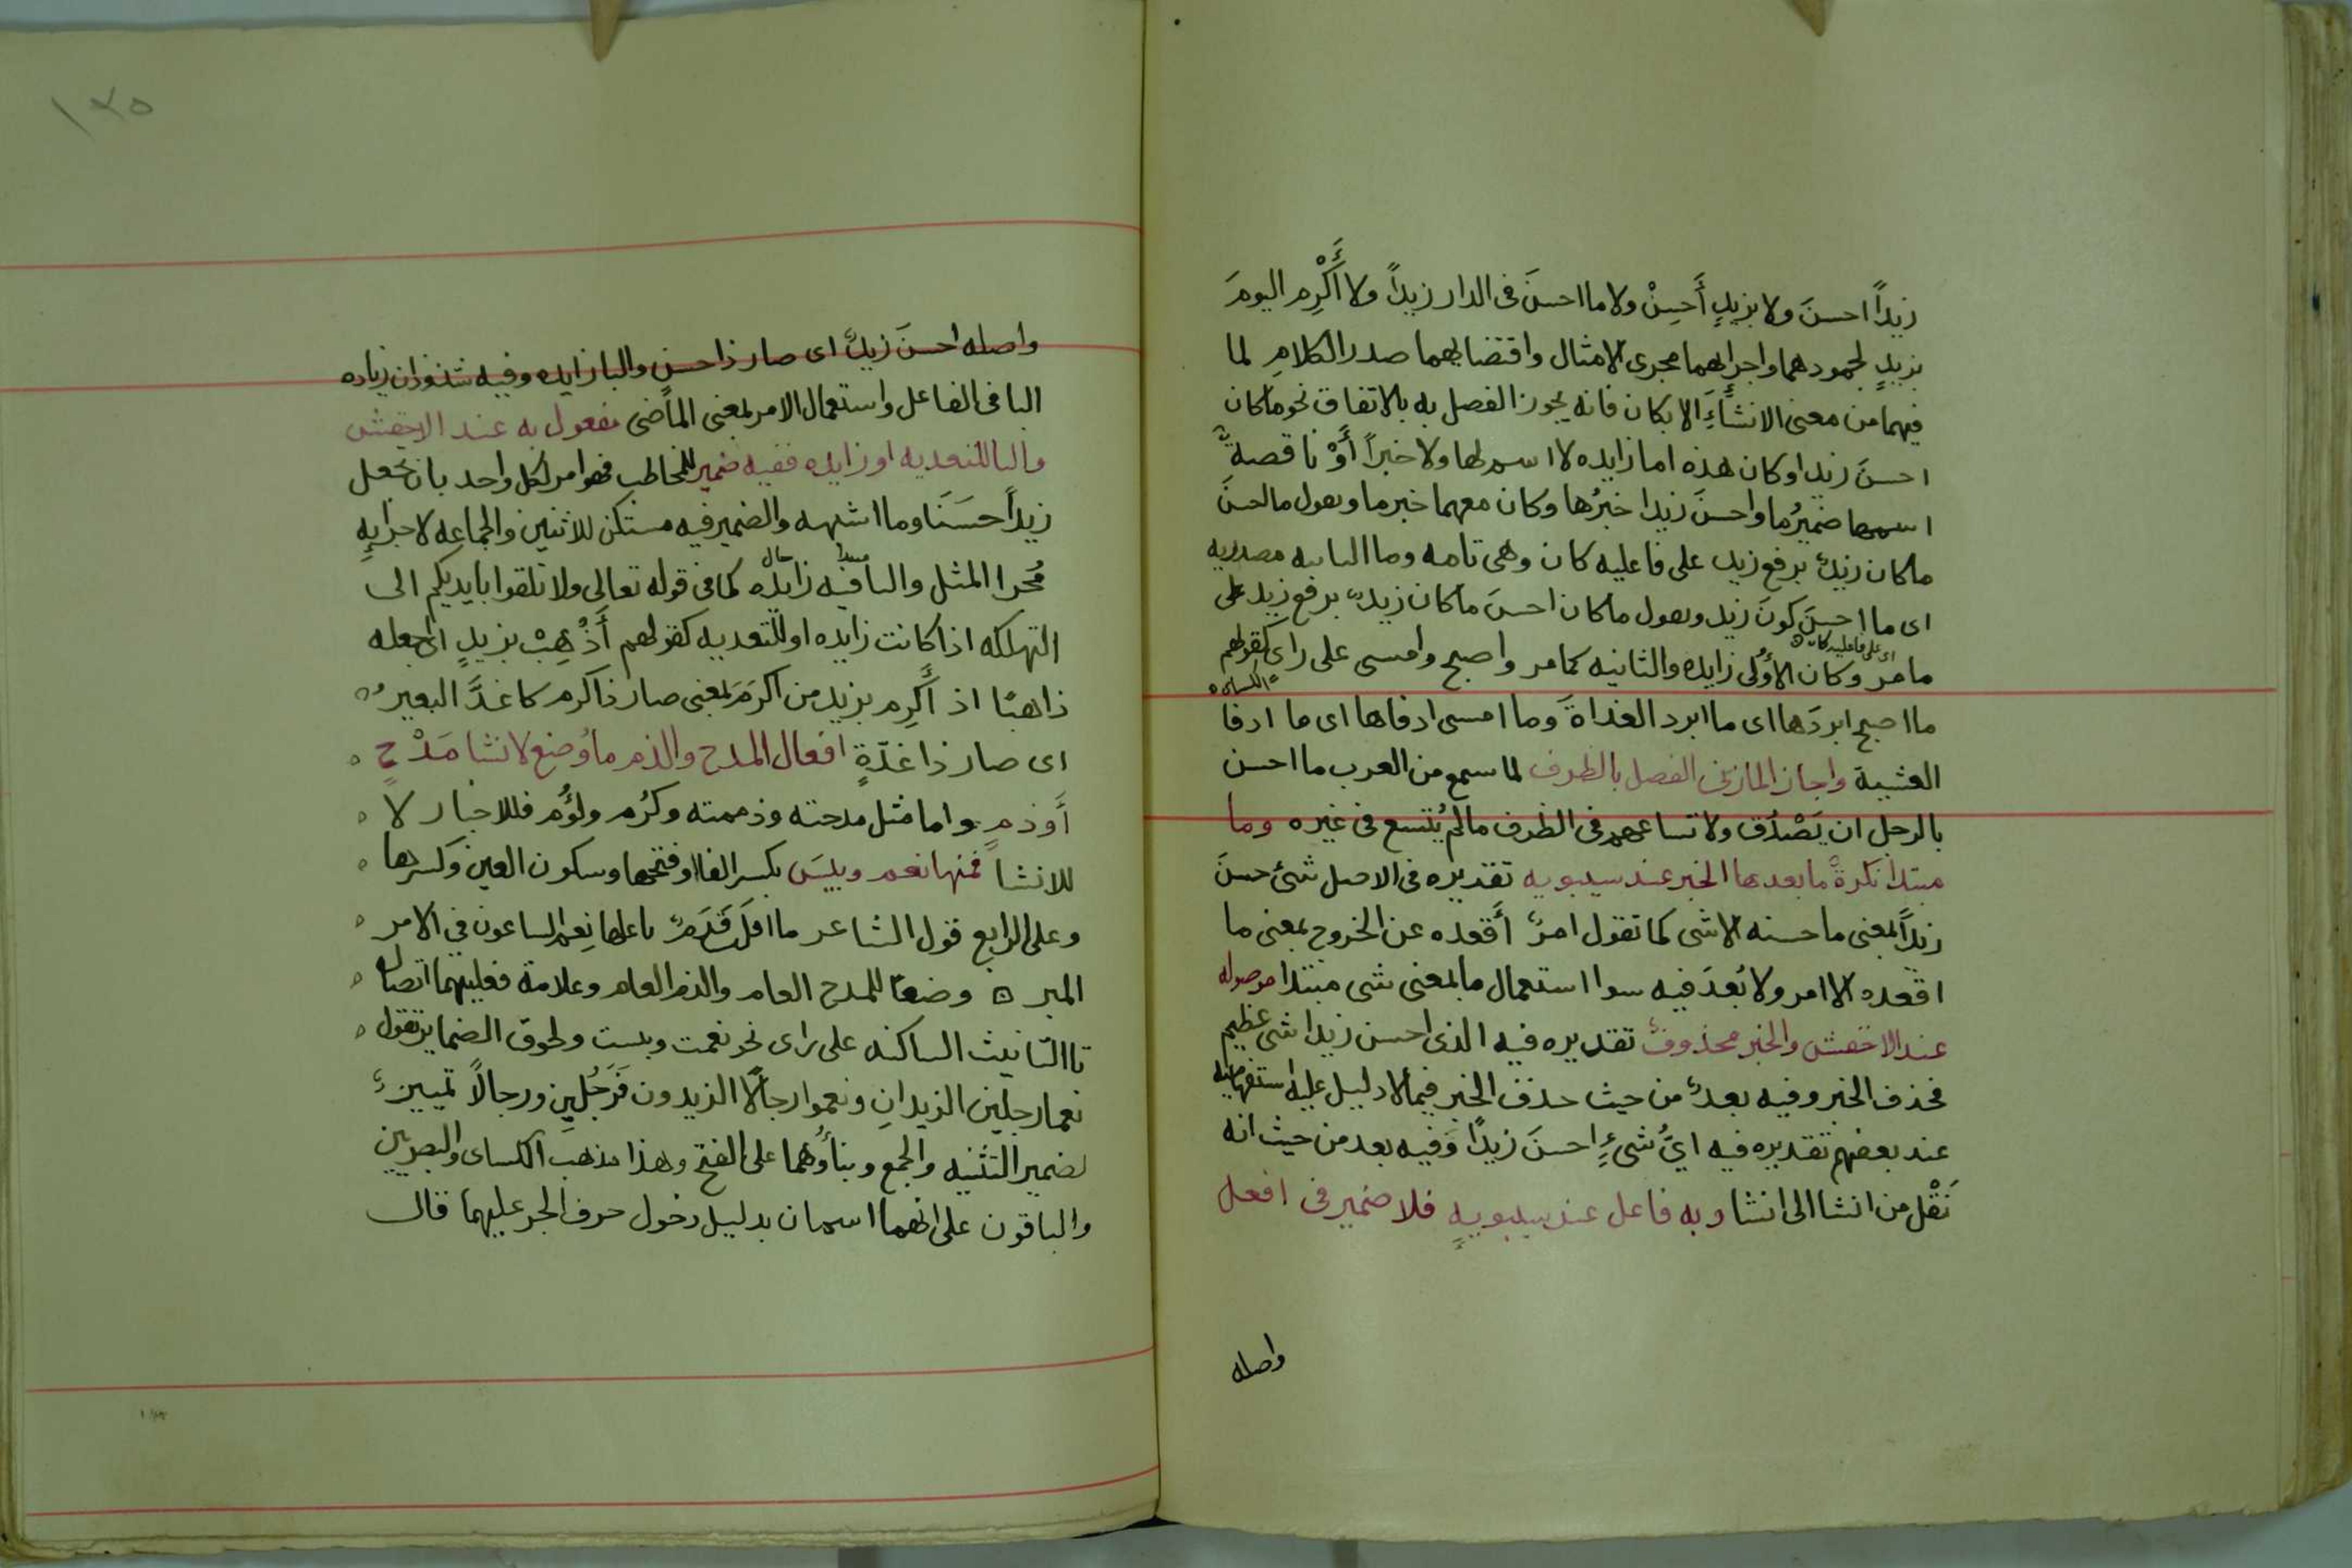 زيداً احسنَ ولا بزيدٍ أَحسِنْ ولا ما احسنَ فى الدار زيداً ولا أَكْرِم اليومَ
بزيدٍ لجمودهما واجرايهما مجرى الامثال واقتضايهما صدر الكلامِ لما
فيهما من معنى الانشآءَ الا بكان فانه يجوز الفصل به بالاتفاق نحو ما كان
احسنَ زيدا وكان هذه اما زايده لا اسم لها ولا خبراً أَوْ ناقصةٌ
اسمها ضميرُ ما واحسنَ زيدا خبرُها وكان معهما خبر ما وىعول ما احسنَ
ما كان زيدٌ برفع زيد على فاعليه كان وهى تامه وما الىاىيه مصدريه
اى ما احسنَ كونَ زيد وىعول ما كان احسنَ ما كان زيدٌ برفع زيد على
اى على فاعليه كان
ما مر وكان الأُولى زايده والثانيه كما مر واصبح وامسى على راى كقولهم
الكساى
ما اصبح ابردَها اى ما ابرد الغداةَ وما امسى ادفاها اى ما ادفا
العشية واجاز المازنى الفصل بالظرف لما سمع من العرب ما احسن
بالرجل ان يَصْدُق ولاتساعهم فى الظرف ما لم يُتسع فى غيره وما
مبتدا نكرةً ما بعدها الخبر عند سيبويه تقديره فى الاصل شئ حسنَ
زيداً بمعنى ما حسنه الا شى كما تقول امرٌ أَقعده عن الخروج بمعنى ما
اقعده الا امر ولا بُعدَ فيه سوا استعمال ما بمعنى شى مبتدا موصوله
عند الاخفش والخبر محذوفٌ تقديره فيه الذى احسن زيدا شى عظيم
فحذف الخبر وفيه بعدٌ من حيث حذف الخبر فيما لا دليل عليه استفهاميه
عند بعضهم تقديره فيه ايُّ شئٍ احسنَ زيدًا وَفيه بعد من حيث انه
نَقْل من انشا الى انشا وبه فاعل عند سيبويهِ فلا ضمير فى افعل
واصله
١٣٥
واصله احسنَ زيدٌ اى صار ذا حسنٍ والبا زايده وفيه شذوذان زياده
البا فى الفاعل واستعمال الامر بمعنى الماضى مفعول به عند الاخفش
والبا للتعديه او زايده ففيه ضمير للمخاطب فهو امر لكل واحد بان يجعل
زيداً حَسَنَا وما اشبهه والضمير فيه مستكن للاثنين والجماعه لاجرايهِ
مبتدا حال
مُجرا المثل والبا فيه زايده كما فى قوله تعالى ولا تلقوا بايديكم الى
التهلكه اذا كانت زايده او للتعديه كقولهم أَذْهِبْ بزيدٍ اى اجعله
ذاهبًا اذ أَكرِم بزيد من اكرَمَ بمعنى صار ذا كرم كاغدَّ البعيرُ
اى صار ذا غدّةٍ افعال المدح والذم ما وُضع لانشا مَدْحٍ
أَو ذمٍ واما مثل مدحته وذممته وكرُم ولؤُم فللاخبار لا
للانشا فمنها نعم وبيسَ بكسر الفا او فتحها وسكون العين وكسرها
وعلى الرابع قول الشاعر ما اقلَّ قَدَمٌ ناعلها نِعِم الساعون فى الامر
المبر وضعًا للمدح العام والذم العام وعلامة فعليتهما اتصال
تا التانيث الساكنه على راى نحو نعمت وبىست ولحوق الضماير تقول
نعما رجلين الزيدانِ ونعموا رجالًا الزيدون فَرَجُلينِ ورجالاً تمييزٌ
لضمير التثنيه والجمع وبناؤُهما على الفتح وهذا مذهب الكساى والبصريين
والباقون على انهما اسمان بدليل دخول حرف الجر عليهما قال